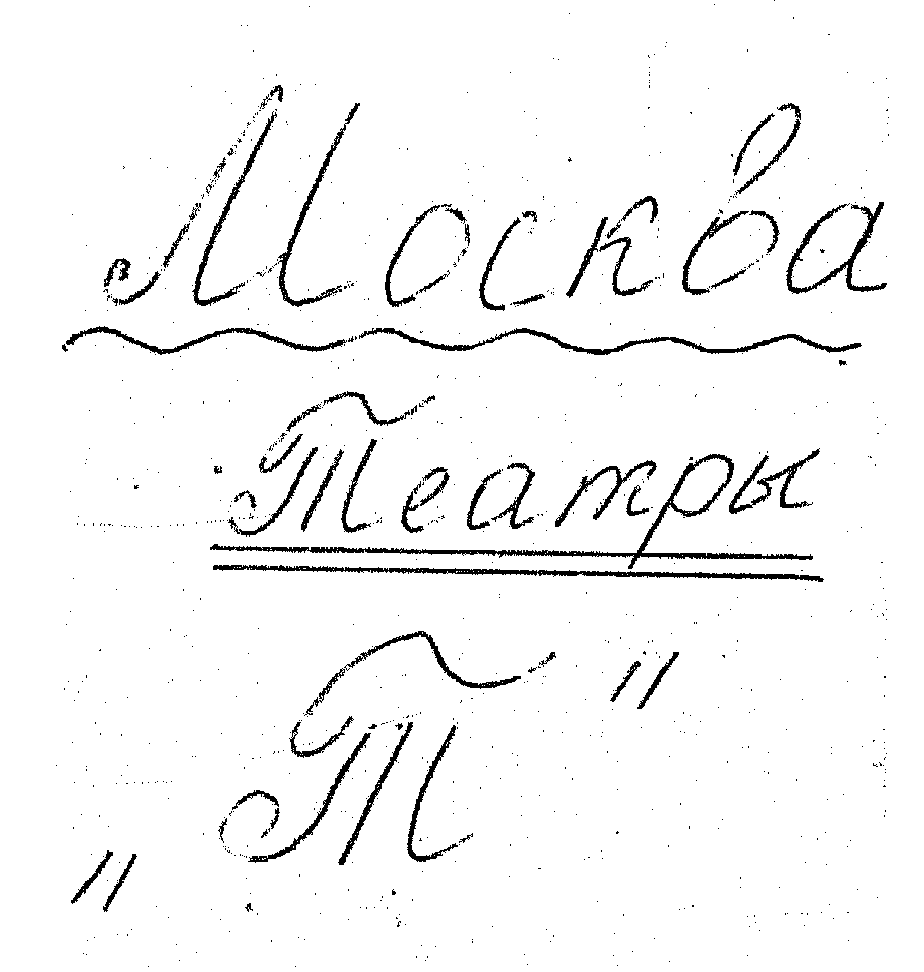 Москва
Театры
„Т"